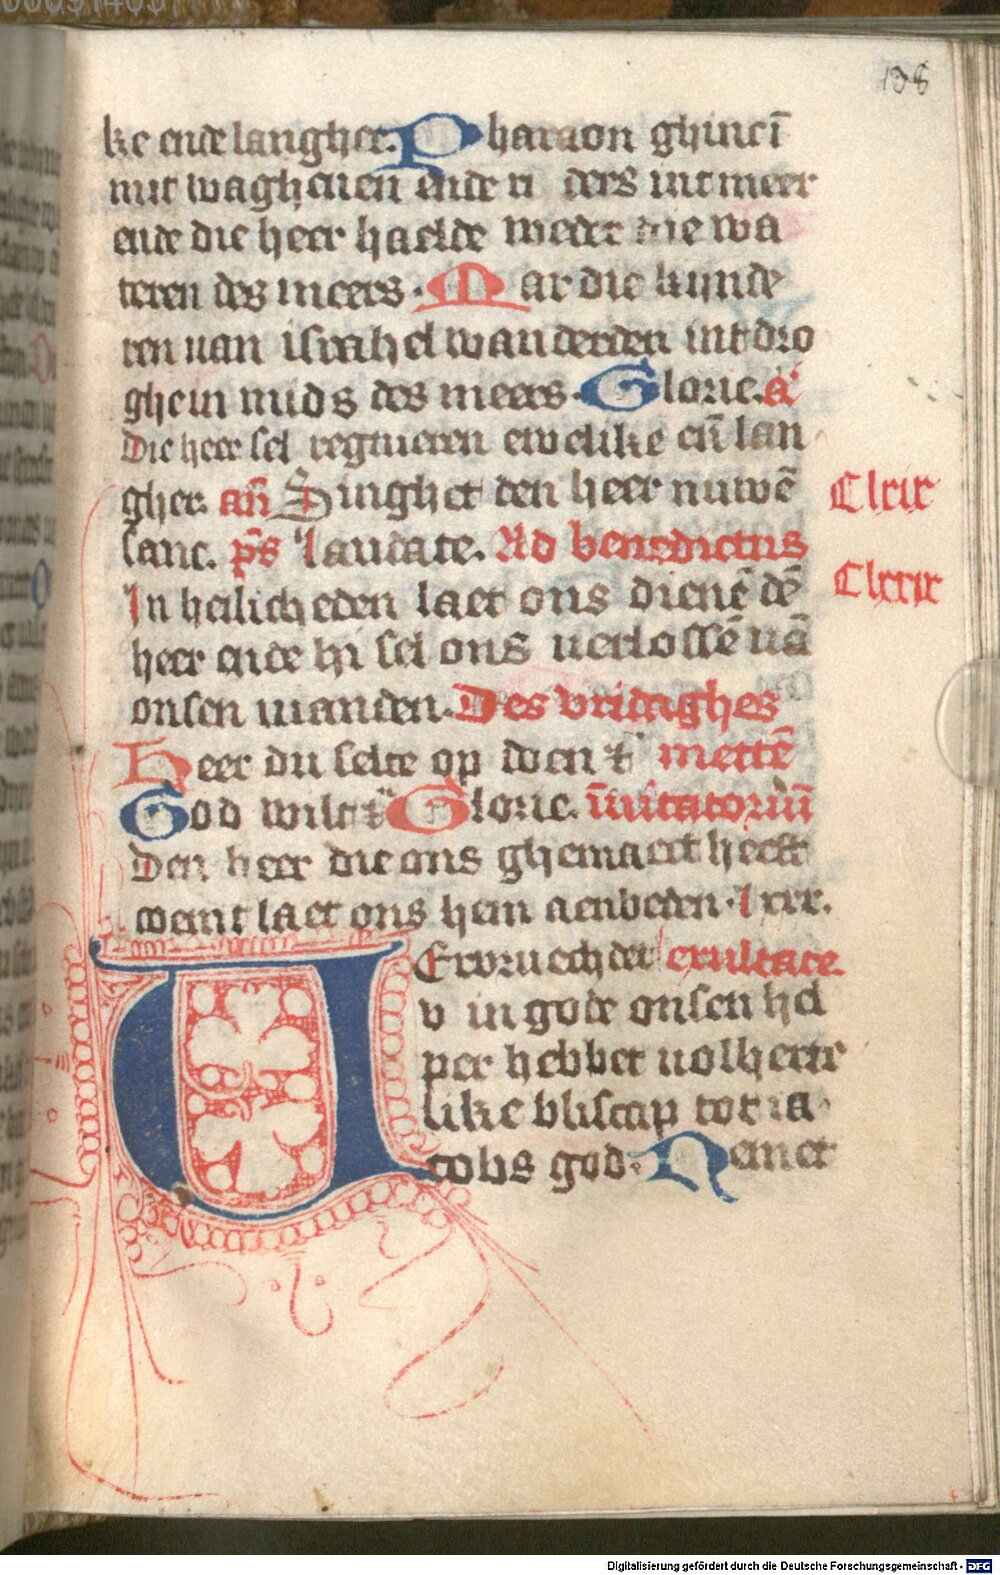 138
ke ende langher. Pharaon ghinc ī
mit waghenen ende ri ders int meer
ende die heer haelde weder die wa
teren des meers. Mar die kinde
ren van israhel wanderden int dro
ghe in mids des meers. Glorie. a
Die heer sel regnieren ewelike eñ lan
gher. an̄ Singhet den heer nuwē
sanc. p̄s laudate. Ad benedictus
In heilicheden laet ons dienē dē
heer ende hi sel ons verlossē vā
onsen vianden. Des vridaghes
Heer du selte op doen
mettē
God wilt Glorie. īuitatoriū
Den heer die ons ghemaect heeft
coemt laet ons hem aenbeden. lxxx.
VErvruech der exultate
v in gode onsen hel
per hebbet volherte
like bliscap tot ia
cobs god. Nemet
Clxix
Clxxix
Digitalisierung gefördert durch die Deutsche Forschungsgemeinschaft - DFG